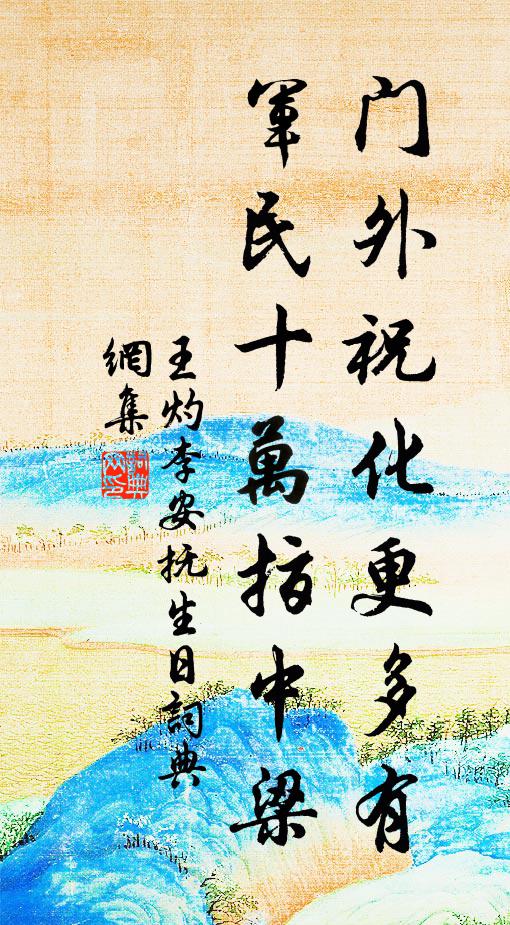 门外祝化更多有
軍民十萬指中梁
王灼李安抚生日詞典
網集
詞典